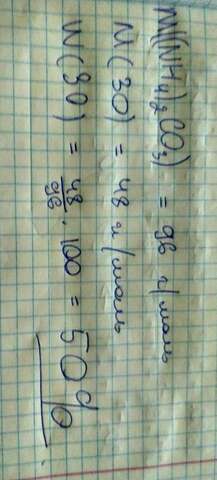 M((NH₄)₂CO₃) = 96 г/моль
M(3O) = 48 г/моль
W(3O) = 48/96 · 100 = 50%